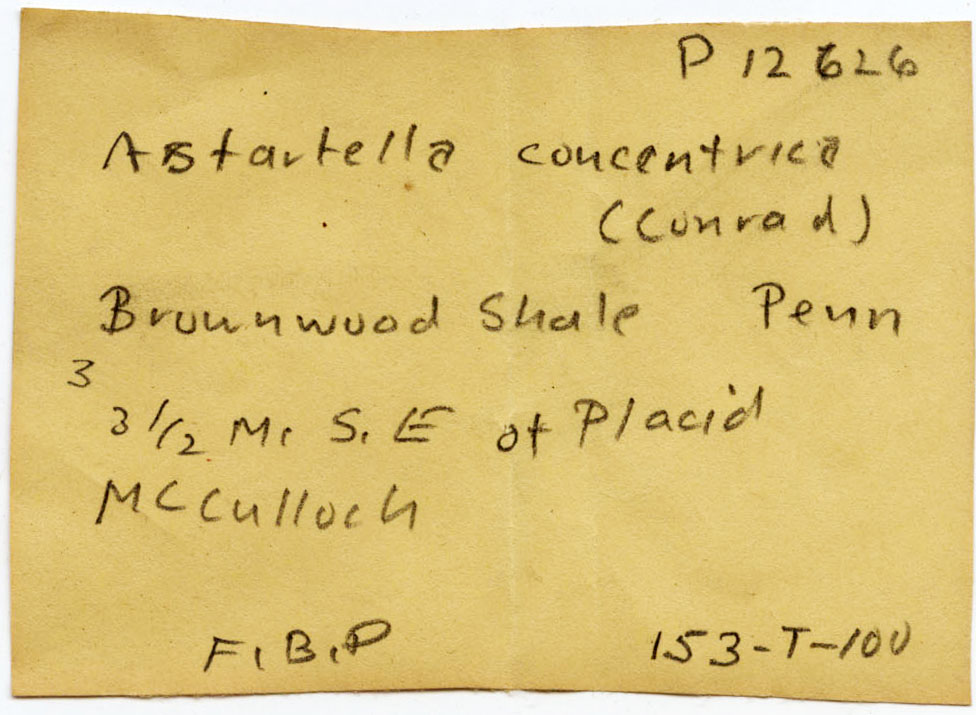 P 12626
Astartella concentrica
(Conrad)
Brownwood Shale Penn
3
3 1/2 M. S. E of Placid
McCulloch
F. B. P
153-T-100